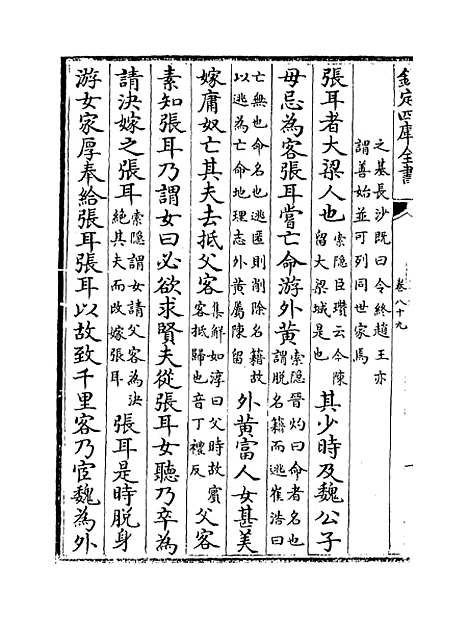 欽定四庫全書
卷八十九
一
之基長沙既曰令終趙王亦
謂善始並可列同世家焉
張耳者大梁人也索隱臣瓚云今陳留大梁城是也其少時及魏公子
毋忌為客張耳嘗亡命游外黃索隱晉灼曰命者名也謂脫名籍而逃崔浩曰
亡無也命名也逃匿則削除名籍故以逃為亡命地理志外黃屬陳留外黃富人女甚美
嫁庸奴亡其夫去抵父客集解如淳曰父時故賓客抵歸也音丁禮反父客
素知張耳乃謂女曰必欲求賢夫從張耳女聽乃卒為
請決嫁之張耳索隱謂女請父客為決絕其夫而改嫁張耳張耳是時脫身
游女家厚奉給張耳張耳以故致千里客乃宦魏為外